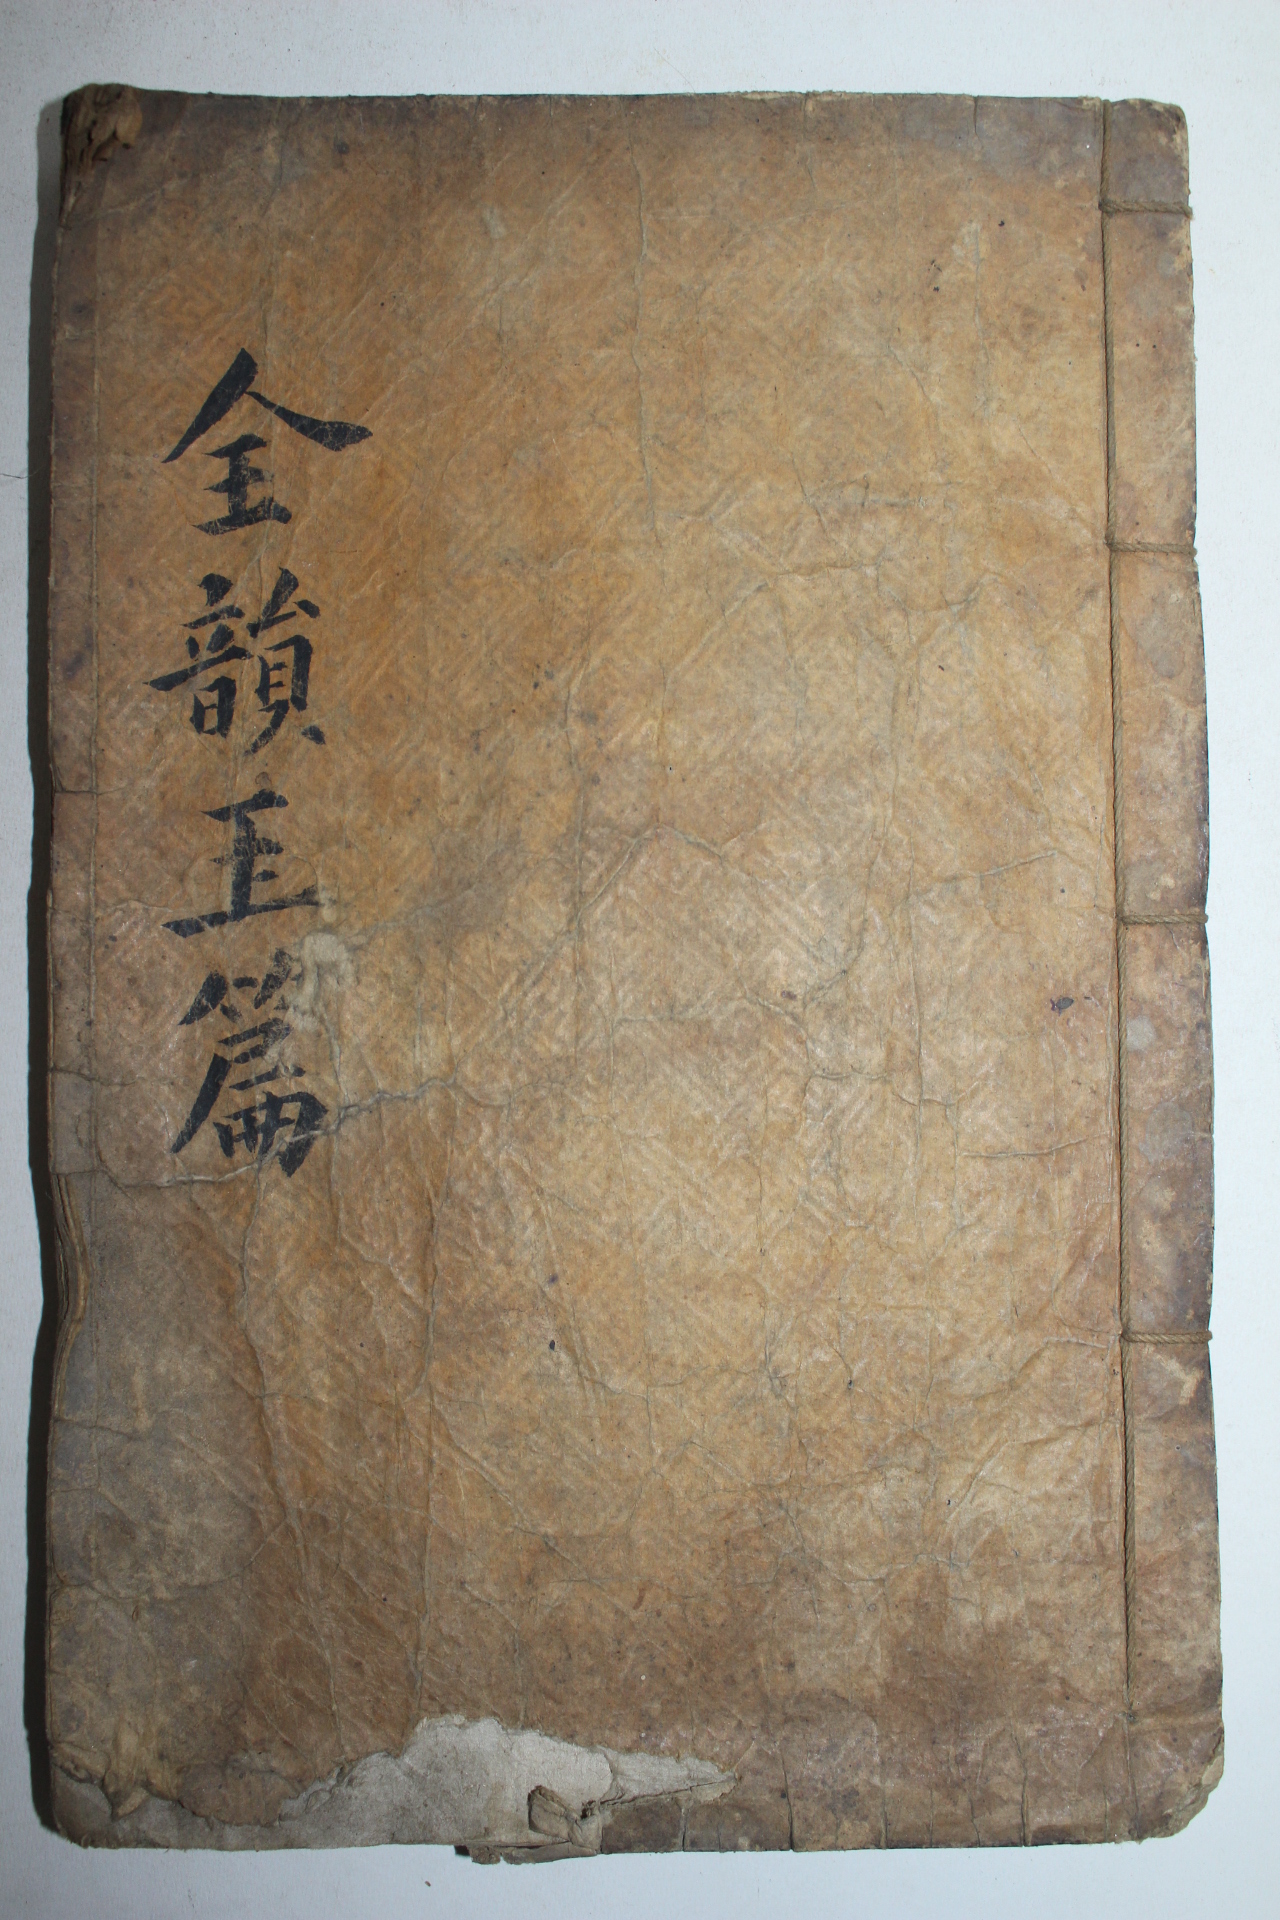 全韻玉篇